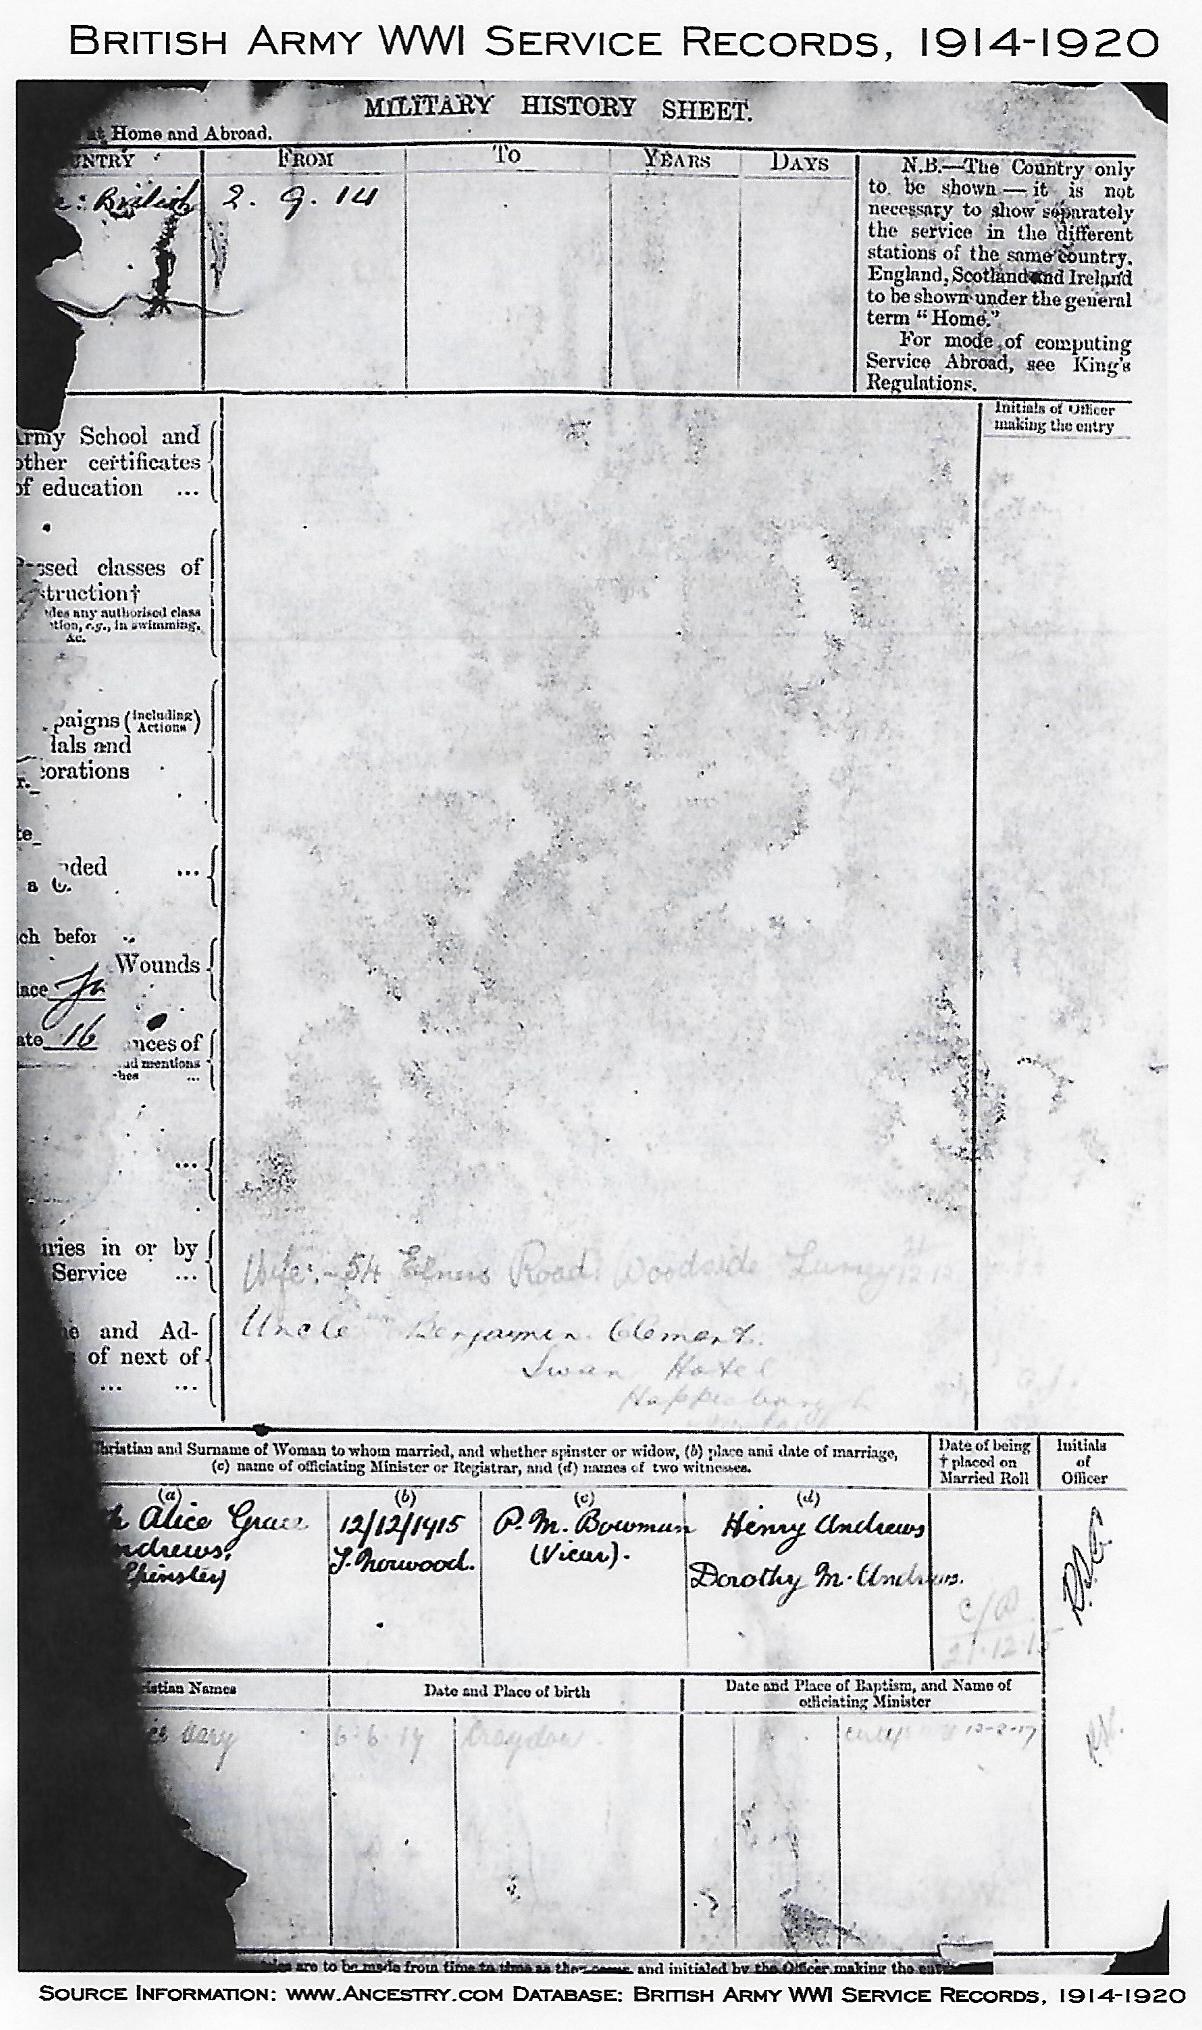 BRITISH ARMY WWI SERVICE RECORDS, 1914-1920
MILITARY HISTORY SHEET.
at Home and Abroad.
UNTRY FROM TO YEARS DAYS
: British 2. 9. 14
N.B.—The Country only
to be shown — it is not
necessary to show separately
the service in the different
stations of the same country.
England, Scotland and Ireland
to be shown under the general
term "Home."
For mode of computing
Service Abroad, see King's
Regulations.
Initials of Officer
making the entry
Army School and
other certificates
of education ...
ssed classes of
struction†
des any authorised class
tion, e.g., in swimming,
&c.
paigns (including Actions)
lals and
corations
te
nded ...
ch befor
Wounds
lace
ate 16
nces of
nd mentions
ches ...
...
uries in or by
Service ...
Wife:- 54 Elmers Road Woodside
Uncle Benjamin Clement.
Swan Hotel
Happisburgh
e and Ad-
of next of
... ...
Christian and Surname of Woman to whom married, and whether spinster or widow, (b) place and date of marriage,
(c) name of officiating Minister or Registrar, and (d) names of two witnesses.
Date of being
† placed on
Married Roll
Initials
of
Officer
(a) (b) (c) (d)
h Alice Grace
ndrews,
Spinster)
12/12/1915
S. Norwood.
P. M. Bowman
(Vicar).
Henry Andrews
Dorothy M. Andrews.
21.12.15
istian Names Date and Place of birth
Date and Place of Baptism, and Name of
officiating Minister
Croydon
12-2-17
are to be made from time to time as they occur, and initialed by the Officer making the
SOURCE INFORMATION: WWW.ANCESTRY.COM DATABASE: BRITISH ARMY WWI SERVICE RECORDS, 1914-1920